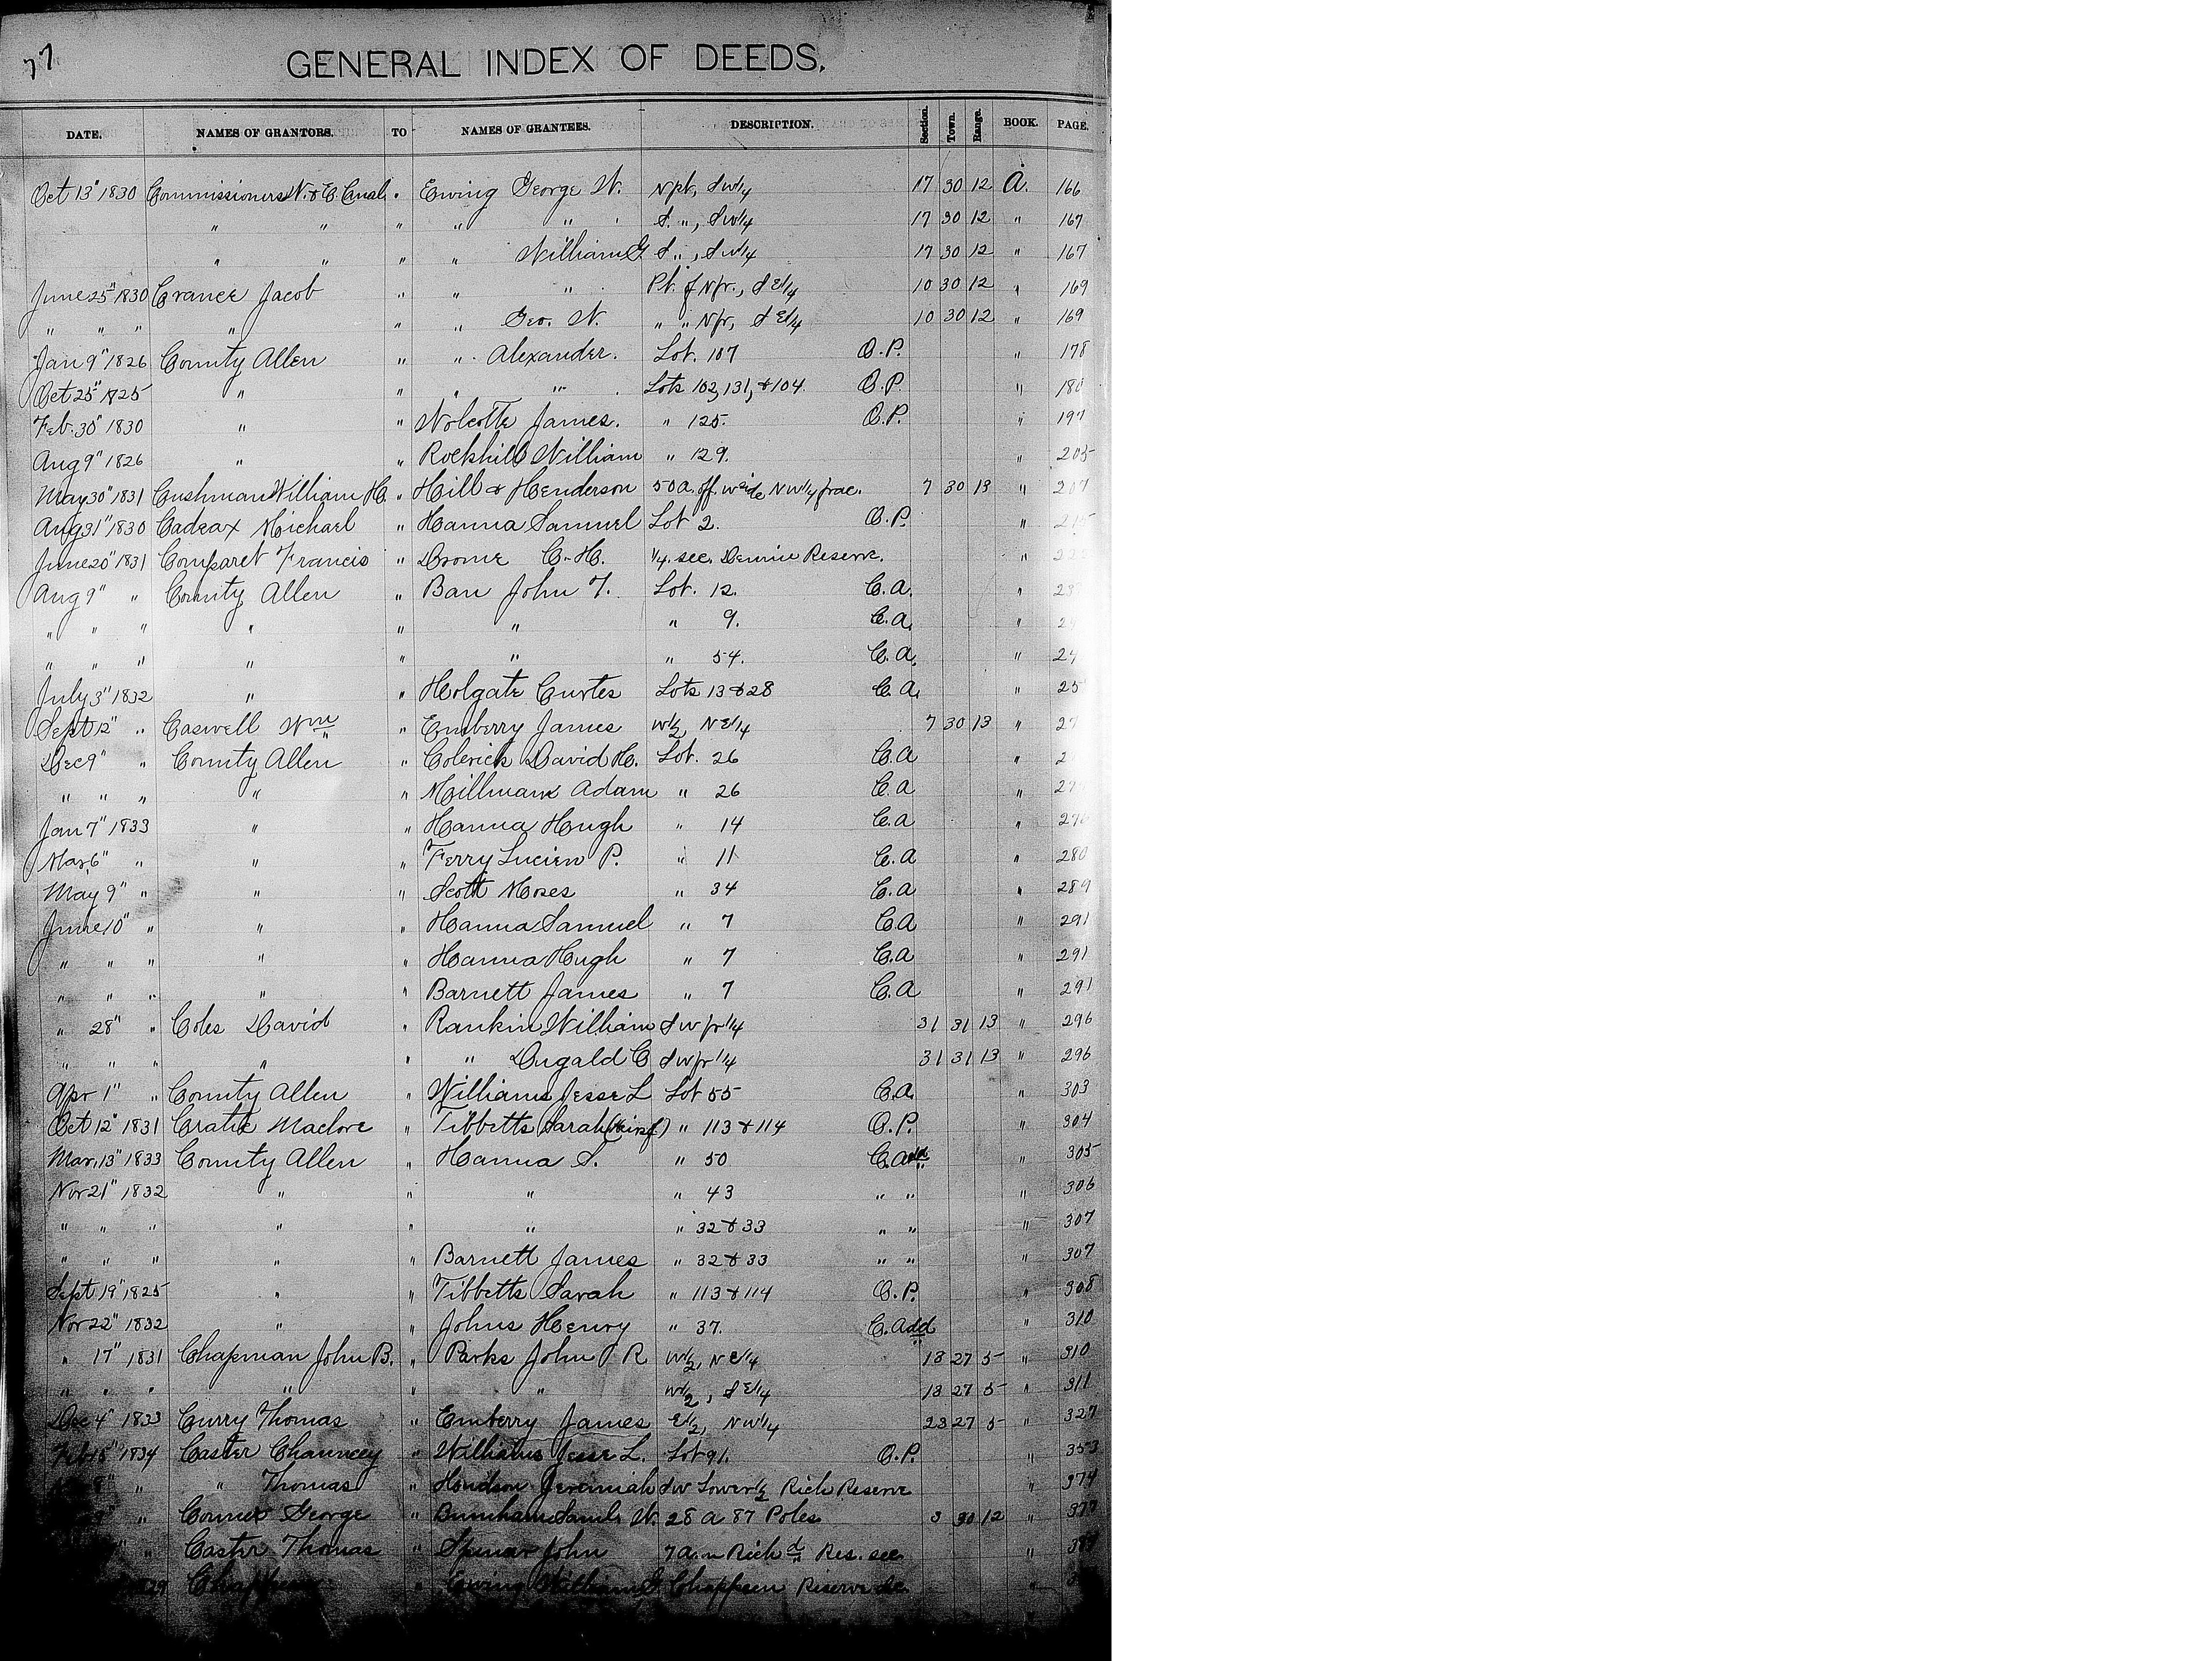 77
GENERAL INDEX OF DEEDS.
DATE. NAMES OF GRANTORS. TO NAMES OF GRANTEES. DESCRIPTION. Section. Town. Range. BOOK. PAGE.
Oct 13" 1830 Commissioners W. & E. Canal " Ewing George W. N pt, S W 1/4 17 30 12 A. 166
" " " " " S. ", S W 1/4 17 30 12 " 167
" " " " William G S ", S W 1/4 17 30 12 " 167
June 25" 1830 Crance Jacob " " " Pt. of N fr., S E 1/4 10 30 12 " 169
" " " " " " Geo. W. " " N fr, S E 1/4 10 30 12 " 169
Jan 9" 1826 County Allen " " Alexander. Lot. 107 O.P. " 178
Oct 25" 1825 " " " " Lots 102, 131, & 104 O.P. " 180
Feb. 30" 1830 " " Wolcotte James. " 125. O.P. " 197
Aug 9" 1826 " " Rockhill William " 129. " 205
May 30" 1831 Cushman William H. " Hill & Henderson 50 a. off w side N W 1/4 frac. 7 30 13 " 207
Aug 31" 1830 Cadeax Michael " Hanna Samuel Lot 2. O.P. " 215
June 20" 1831 Comparet Francis " Drome C. H. 1/4. sec. Dennie Reserve. "
Aug 9" " County Allen " Barr John T. Lot. 12. C. A. "
" " " " " " " 9. C. A. "
" " " " " " " 54. C. A. " 24
July 3" 1832 " " Holgate Curtes Lots 13 & 28 C. A. " 25
Sept 12" " Caswell Wm " Emberry James W 1/2, N E 1/4 7 30 13 " 27
Dec 9" " County Allen " Colerick David H. Lot. 26 C. A " 2
" " " " " Millman Adam " 26 C. A " 27
Jan 7" 1833 " " Hanna Hugh " 14 C. A " 276
Mar. 6" " " " Ferry Lucien P. " 11 C. A " 280
May 9" " " " Scott Moses " 34 C. A " 289
June 10" " " " Hanna Samuel " 7 C. A " 291
" " " " " Hanna Hugh " 7 C. A " 291
" " " " " Barnett James " 7 C. A " 291
" 28" " Coles David " Rankin William S W fr 1/4 31 31 13 " 296
" " " " " " Dugald C S W fr 1/4 31 31 13 " 296
Apr 1" " County Allen " Williams Jesse L Lot 55 C. A. " 303
Oct 12" 1831 Cratie Maclore " Tibbetts Sarah " 113 & 114 O. P. " 304
Mar. 13" 1833 County Allen " Hanna S. " 50 C. Add " 305
Nov 21" 1832 " " " " 43 " " " 306
" " " " " " " 32 & 33 " " " 307
" " " " " Barnett James " 32 & 33 " " " 307
Sept 19" 1825 " " Tibbetts Sarah " 113 & 114 O. P. " 308
Nov 22" 1832 " " Johns Henry " 37. C. Add " 310
" 17" 1831 Chapman John B. " Parks John R W 1/2, N E 1/4 18 27 5 " 310
" " " " " " W 1/2, S E 1/4 18 27 5 " 311
Dec 4" 1833 Curry Thomas " Emberry James E 1/2, N W 1/4 23 27 5 " 327
1834 Caster Chauncey " Williams Jesse L. Lot 91. O. P. " 353
" " Thomas " Hudson Jeremiah S W Lower 1/2 Rich Reserve " 374
" Conner George " Burnham Saml. W. 28 a 87 Poles 3 30 12 " 377
" Caster Thomas " John 7 a. in Richd Res. sec.
" Ewing William G Chappeen Reserve